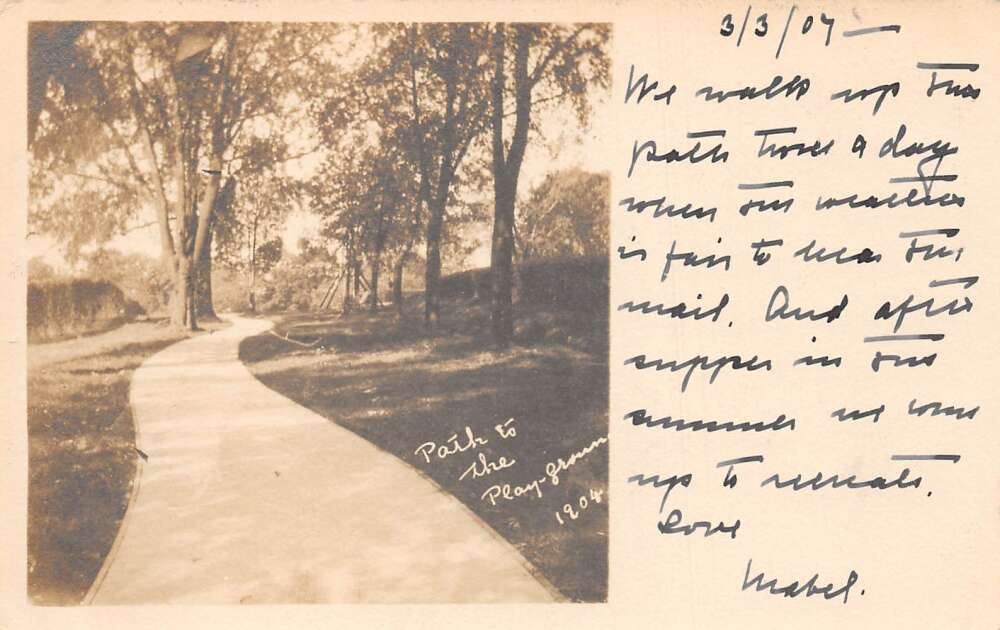 3/3/07—
We walk up this
path twice a day
when the weather
is fair to hear the
mail. And after
supper in the
summer we come
up to recreate.
Love
Mabel.
Path to
the
Play-groun
1904